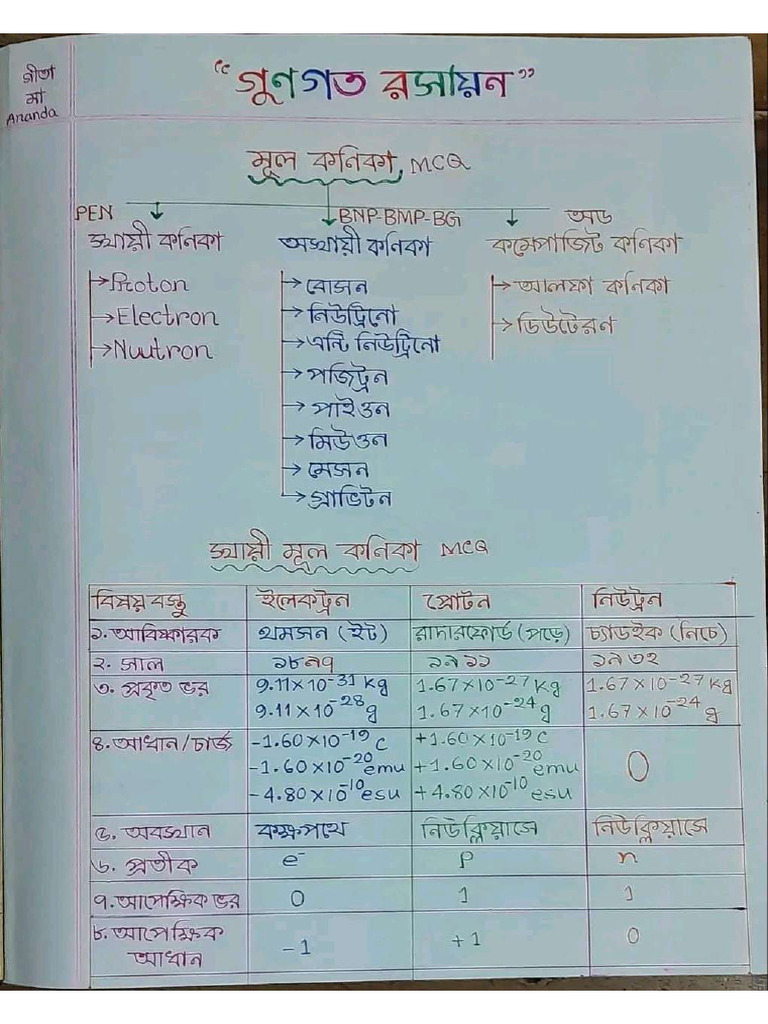 গীতা
মা
Ananda
“গুণগত রসায়ন”
মূল কনিকা, MCQ
PEN BNP-BMP-BG অড
স্থায়ী কনিকা অস্থায়ী কনিকা কম্পোজিট কনিকা
Proton বোসন আলফা কনিকা
Electron নিউট্রিনো ডিউটেরন
Nuutron এন্টি নিউট্রিনো
পজিট্রন
পাইওন
মিউওন
মেসন
গ্রাভিটন
স্থায়ী মূল কনিকা MCQ
বিষয়বস্তু ইলেকট্রন প্রোটন নিউট্রন
১. আবিষ্কারক থমসন (ইট) রাদারফোর্ড (পড়ে) চ্যাডইক (নিচে)
২. সাল ১৮৯৭ ১৯১১ ১৯৩২
৩. প্রকৃত ভর 9.11×10⁻³¹ kg 1.67×10⁻²⁷ kg 1.67×10⁻²⁷ kg
9.11×10⁻²⁸ g 1.67×10⁻²⁴ g 1.67×10⁻²⁴ g
৪. আধান/চার্জ -1.60×10⁻¹⁹ C +1.60×10⁻¹⁹ C 0
-1.60×10⁻²⁰ emu +1.60×10⁻²⁰ emu
-4.80×10⁻¹⁰ esu +4.80×10⁻¹⁰ esu
৫. অবস্থান কক্ষপথে নিউক্লিয়াসে নিউক্লিয়াসে
৬. প্রতীক e⁻ P n
৭. আপেক্ষিক ভর 0 1 1
৮. আপেক্ষিক -1 +1 0
আধান